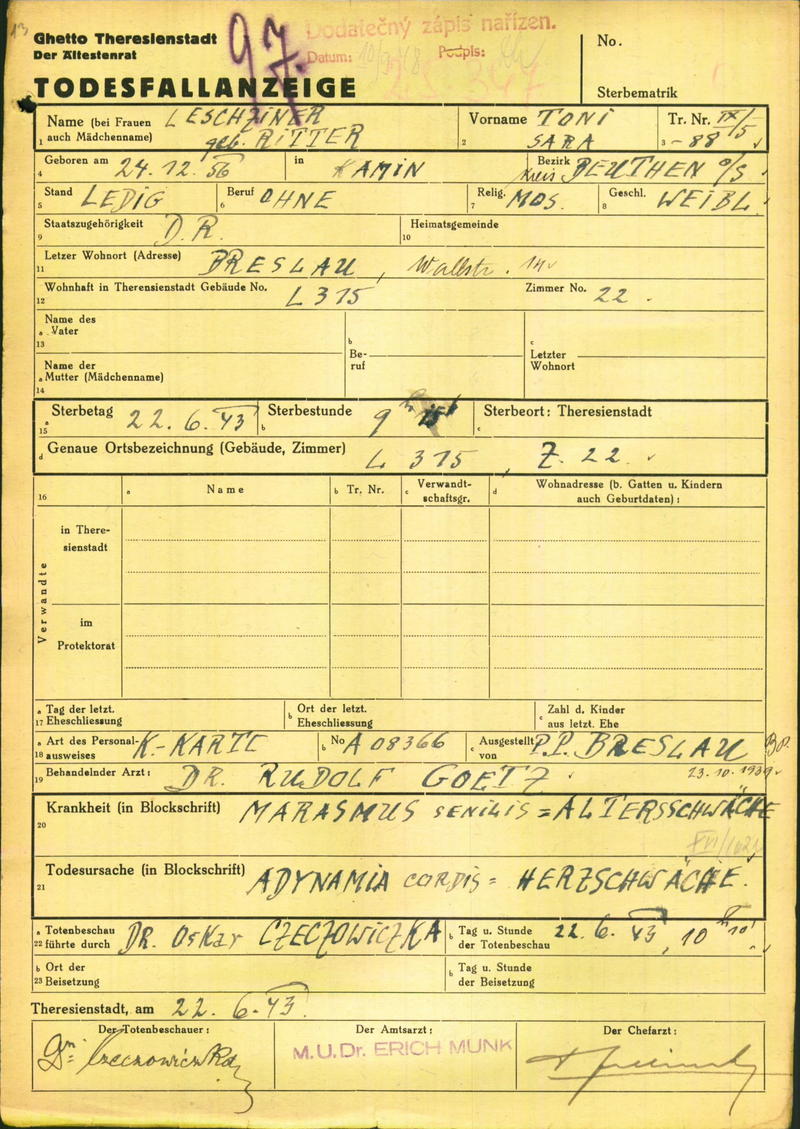 13
Ghetto Theresienstadt
Der Ältestenrat
TODESFALLANZEIGE
97.
Dodatečný zápis nařízen.
Datum: Podpis:
No.
Sterbematrik
Name (bei Frauen auch Mädchenname) LESCHZINER
geb. RITTER
1
Vorname TONI
SARA
2
Tr. Nr. IX/5
3 - 88
Geboren am 24.12.56 in KAMIN Bezirk Kreis BEUTHEN O/S
4
Stand LEDIG Beruf OHNE Relig. MOS. Geschl. WEIBL.
5 6 7 8
Staatszugehörigkeit D.R. Heimatsgemeinde
9 10
Letzer Wohnort (Adresse) BRESLAU, Wallstr. 14
11
Wohnhaft in Therensienstadt Gebäude No. L 315 Zimmer No. 22.
12
Name des
a Vater
13
b
Be-
ruf
c
Letzter
Wohnort
Name der
a Mutter (Mädchenname)
14
a Sterbetag 22.6.43 b Sterbestunde 9h 15 c Sterbeort: Theresienstadt
15
d Genaue Ortsbezeichnung (Gebäude, Zimmer) L 315, Z. 22
16 a Name b Tr. Nr. c Verwandt-
schaftsgr. d Wohnadresse (b. Gatten u. Kindern
auch Geburtdaten):
Verwandte
in There-
sienstadt
im
Protektorat
a Tag der letzt.
17 Eheschliessung
b Ort der letzt.
Eheschliessung
c Zahl d. Kinder
aus letzt. Ehe
a Art des Personal-
18 ausweises K.-KARTE
b No A 08366
c Ausgestellt
von P.P. BRESLAU
23.10.1939
19 Behandelnder Arzt: DR. RUDOLF GOETZ
Krankheit (in Blockschrift) MARASMUS SENILIS = ALTERSSCHWÄCHE
20
Todesursache (in Blockschrift) ADYNAMIA CORDIS = HERZSCHWÄCHE.
21
a Totenbeschau
22 führte durch DR. OSKAR CZECZOWICZKA
b Tag u. Stunde
der Totenbeschau 22.6.43, 10h 10'
b Ort der
23 Beisetzung
b Tag u. Stunde
der Beisetzung
Theresienstadt, am 22.6.43.
Der Totenbeschauer: Der Amtsarzt: Der Chefarzt:
Dr. Czeczowiczka
M.U.Dr. ERICH MUNK